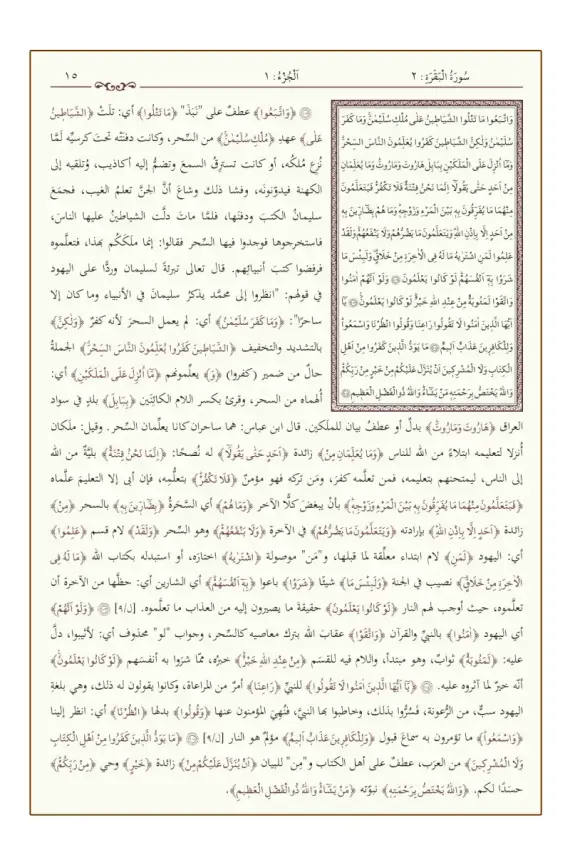 سُورَةُ الْبَقَرَةِ: ٢ اَلْجُزْءُ: ١ ١٥
وَاتَّبَعُوا مَا تَتْلُوا الشَّيَاطِينُ عَلَى مُلْكِ سُلَيْمٰنَۚ وَمَا كَفَرَ
سُلَيْمٰنُ وَلٰكِنَّ الشَّيَاطِينَ كَفَرُوا يُعَلِّمُونَ النَّاسَ السِّحْرَۗ
وَمَٓا اُنْزِلَ عَلَى الْمَلَكَيْنِ بِبَابِلَ هَارُوتَ وَمَارُوتَۜ وَمَا يُعَلِّمَانِ
مِنْ اَحَدٍ حَتّٰى يَقُولَٓا اِنَّمَا نَحْنُ فِتْنَةٌ فَلَا تَكْفُرْۜ فَيَتَعَلَّمُونَ
مِنْهُمَا مَا يُفَرِّقُونَ بِهِ بَيْنَ الْمَرْءِ وَزَوْجِهِۜ وَمَا هُمْ بِضَٓارِّينَ بِهِ
مِنْ اَحَدٍ اِلَّا بِاِذْنِ اللّٰهِۜ وَيَتَعَلَّمُونَ مَا يَضُرُّهُمْ وَلَا يَنْفَعُهُمْۜ وَلَقَدْ
عَلِمُوا لَمَنِ اشْتَرٰيهُ مَا لَهُ فِى الْاٰخِرَةِ مِنْ خَلَاقٍۜ وَلَبِئْسَ مَا
شَرَوْا بِهِ اَنْفُسَهُمْۜ لَوْ كَانُوا يَعْلَمُونَ ۝ وَلَوْ اَنَّهُمْ اٰمَنُوا
وَاتَّقَوْا لَمَثُوبَةٌ مِنْ عِنْدِ اللّٰهِ خَيْرٌۜ لَوْ كَانُوا يَعْلَمُونَ۟ ۝ يَٓا
اَيُّهَا الَّذِينَ اٰمَنُوا لَا تَقُولُوا رَاعِنَا وَقُولُوا انْظُرْنَا وَاسْمَعُواۜ
وَلِلْكَافِرِينَ عَذَابٌ اَلِيمٌ ۝ مَا يَوَدُّ الَّذِينَ كَفَرُوا مِنْ اَهْلِ
الْكِتَابِ وَلَا الْمُشْرِكِينَ اَنْ يُنَزَّلَ عَلَيْكُمْ مِنْ خَيْرٍ مِنْ رَبِّكُمْۜ
وَاللّٰهُ يَخْتَصُّ بِرَحْمَتِهِ مَنْ يَشَٓاءُۜ وَاللّٰهُ ذُو الْفَضْلِ الْعَظِيمِ ۝
﴿وَاتَّبَعُوا﴾ عطفٌ على "نَبَذَ" ﴿مَا تَتْلُوا﴾ أي: تلَتْ ﴿الشَّيَاطِينُ
عَلَى﴾ عهدِ ﴿مُلْكِ سُلَيْمٰنَۚ﴾ من السِّحر، وكانت دفنَتْه تحتَ كرسيِّه لَمَّا
نُزِع مُلكُه، أو كانت تسترِقُ السمعَ وتضمُّ إليه أكاذيب، وُتلقيه إلى
الكهنة فيدوِّنونَه، وفشا ذلك وشاعَ أنَّ الجنَّ تعلمُ الغيب، فجمَعَ
سليمانُ الكتبَ ودفنَها، فلمَّا ماتَ دلَّت الشياطينُ عليها الناسَ،
فاستخرجوها فوجدوا فيها السِّحر فقالوا: إنما ملَكَكُم بهذا، فتعلَّموه
فرفضوا كتبَ أنبيائِهم. قال تعالى تبرئةً لسليمان وردًّا على اليهود
في قولهم: "انظروا إلى محمَّد يذكرُ سليمانَ في الأنبياء وما كان إلا
ساحرًا": ﴿وَمَا كَفَرَ سُلَيْمٰنُ﴾ أي: لم يعملِ السحرَ لأنه كفرٌ ﴿وَلٰكِنَّ﴾
بالتشديد والتخفيف ﴿الشَّيَاطِينَ كَفَرُوا يُعَلِّمُونَ النَّاسَ السِّحْرَۗ﴾ الجملةُ
حالٌ من ضمير (كفروا) ﴿وَ﴾ يعلِّمونهم ﴿مَٓا اُنْزِلَ عَلَى الْمَلَكَيْنِ﴾ أي:
أُلهماه من السحر، وقرئ بكسر اللام الكائنَين ﴿بِبَابِلَ﴾ بلدٍ في سواد
العراق ﴿هَارُوتَ وَمَارُوتَۜ﴾ بدلٌ أو عطفُ بيان للملَكين. قال ابن عباس: هما ساحران كانا يعلِّمان السحر. وقيل: ملَكان
أُنزلا لتعليمه ابتلاءً من الله للناس ﴿وَمَا يُعَلِّمَانِ مِنْ﴾ زائدة ﴿اَحَدٍ حَتّٰى يَقُولَٓا﴾ له نُصحًا: ﴿اِنَّمَا نَحْنُ فِتْنَةٌ﴾ بليَّةٌ من الله
إلى الناس، ليمتحنهم بتعليمه، فمن تعلَّمه كفرَ، ومَن تركه فهو مؤمنٌ ﴿فَلَا تَكْفُرْۜ﴾ بتعلُّمِه، فإن أبى إلا التعليمَ علَّماه
﴿فَيَتَعَلَّمُونَ مِنْهُمَا مَا يُفَرِّقُونَ بِهِ بَيْنَ الْمَرْءِ وَزَوْجِهِۜ﴾ بأنْ يبغضَ كلًّا الآخر ﴿وَمَا هُمْ﴾ أي السَّحَرةُ ﴿بِضَٓارِّينَ بِهِ﴾ بالسحر ﴿مِنْ﴾
زائدة ﴿اَحَدٍ اِلَّا بِاِذْنِ اللّٰهِۜ﴾ بإرادته ﴿وَيَتَعَلَّمُونَ مَا يَضُرُّهُمْ﴾ في الآخرة ﴿وَلَا يَنْفَعُهُمْۜ﴾ وهو السِّحر ﴿وَلَقَدْ﴾ لام قسم ﴿عَلِمُوا﴾
أي: اليهود ﴿لَمَنِ﴾ لام ابتداء معلِّقة لما قبلها، و"مَن" موصولة ﴿اشْتَرٰيهُ﴾ اختارَه، أو استبدله بكتاب الله ﴿مَا لَهُ فِى
الْاٰخِرَةِ مِنْ خَلَاقٍۜ﴾ نصيب في الجنة ﴿وَلَبِئْسَ مَا﴾ شيئًا ﴿شَرَوْا﴾ باعوا ﴿بِهِ اَنْفُسَهُمْۜ﴾ أي الشارين أي: حظَّها من الآخرة أن
تعلَّموه، حيث أوجب لهم النار ﴿لَوْ كَانُوا يَعْلَمُونَ﴾ حقيقةَ ما يصيرون إليه من العذاب ما تعلَّموه. [ل/٩] ۝ ﴿وَلَوْ اَنَّهُمْ﴾
أي اليهود ﴿اٰمَنُوا﴾ بالنبيِّ والقرآن ﴿وَاتَّقَوْا﴾ عقابَ الله بترك معاصيه كالسِّحر، وجواب "لو" محذوف أي: لأثيبوا، دلَّ
عليه: ﴿لَمَثُوبَةٌ﴾ ثوابٌ، وهو مبتدأ، واللام فيه للقسَم ﴿مِنْ عِنْدِ اللّٰهِ خَيْرٌۜ﴾ خبرُه، ممَّا شرَوا به أنفسَهم ﴿لَوْ كَانُوا يَعْلَمُونَ۟﴾
أنَّه خيرٌ لما آثروه عليه. ۝ ﴿يَٓا اَيُّهَا الَّذِينَ اٰمَنُوا لَا تَقُولُوا﴾ للنبيِّ ﴿رَاعِنَا﴾ أمرٌ من المراعاة، وكانوا يقولون له ذلك، وهي بلغةِ
اليهود سبٌّ، من الرُّعونة، فسُرُّوا بذلك، وخاطبوا بها النبيَّ، فنُهِيَ المؤمنون عنها ﴿وَقُولُوا﴾ بدلها ﴿انْظُرْنَا﴾ أي: انظر إلينا
﴿وَاسْمَعُواۜ﴾ ما تؤمرون به سماعَ قبول ﴿وَلِلْكَافِرِينَ عَذَابٌ اَلِيمٌ﴾ مؤلِمٌ هو النار [ل/٩] ۝ ﴿مَا يَوَدُّ الَّذِينَ كَفَرُوا مِنْ اَهْلِ الْكِتَابِ
وَلَا الْمُشْرِكِينَ﴾ من العرَب، عطفٌ على أهل الكتاب و"مِن" للبيان ﴿اَنْ يُنَزَّلَ عَلَيْكُمْ مِنْ﴾ زائدة ﴿خَيْرٍ﴾ وحي ﴿مِنْ رَبِّكُمْۜ﴾
حسَدًا لكم. ﴿وَاللّٰهُ يَخْتَصُّ بِرَحْمَتِهِ﴾ نبوّته ﴿مَنْ يَشَٓاءُۜ وَاللّٰهُ ذُو الْفَضْلِ الْعَظِيمِ﴾.